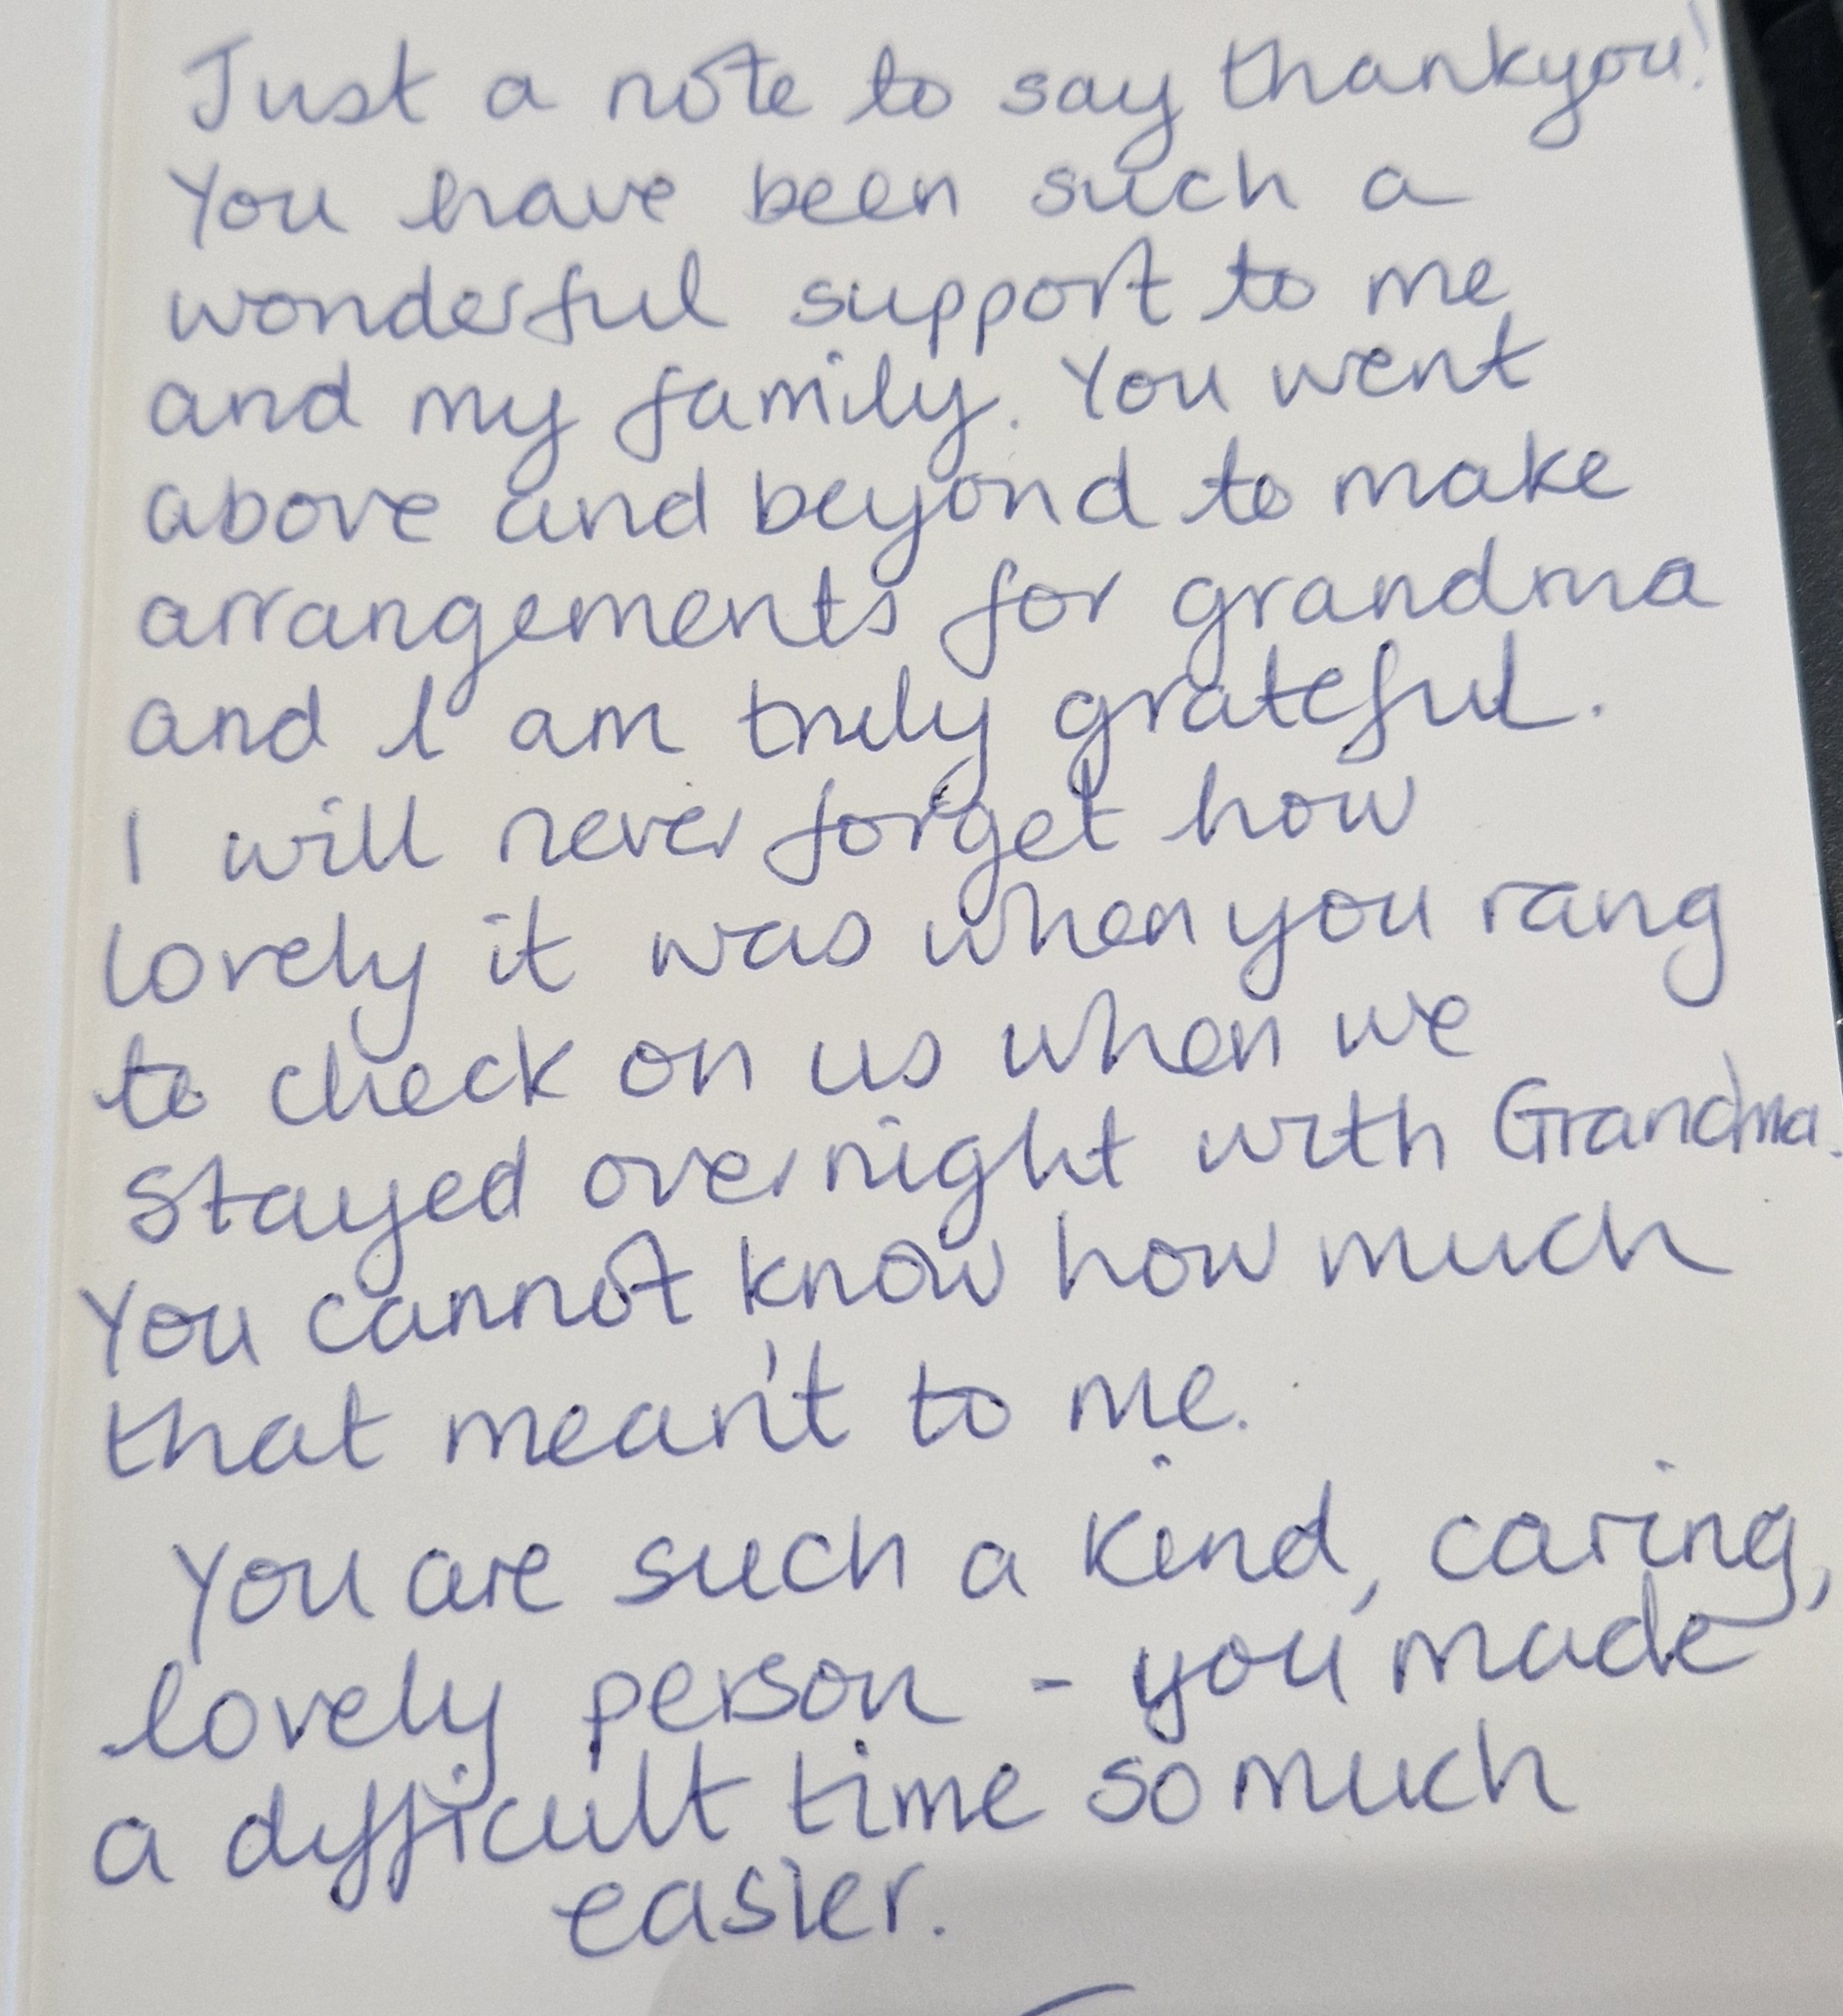 Just a note to say thankyou!
You have been such a
wonderful support to me
and my family. You went
above and beyond to make
arrangements for grandma
and I am truly grateful.
I will never forget how
lovely it was when you rang
to check on us when we
stayed overnight with Grandma.
You cannot know how much
that mean't to me.
You are such a kind, caring,
lovely person - you made
a difficult time so much
easier.